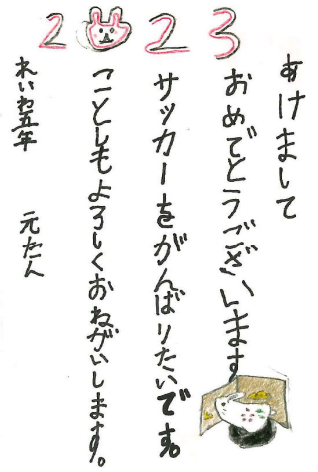 2023
あけまして
おめでとうございます
サッカーをがんばりたいです。
ことしもよろしくおねがいします。
れいわ五年　元たん